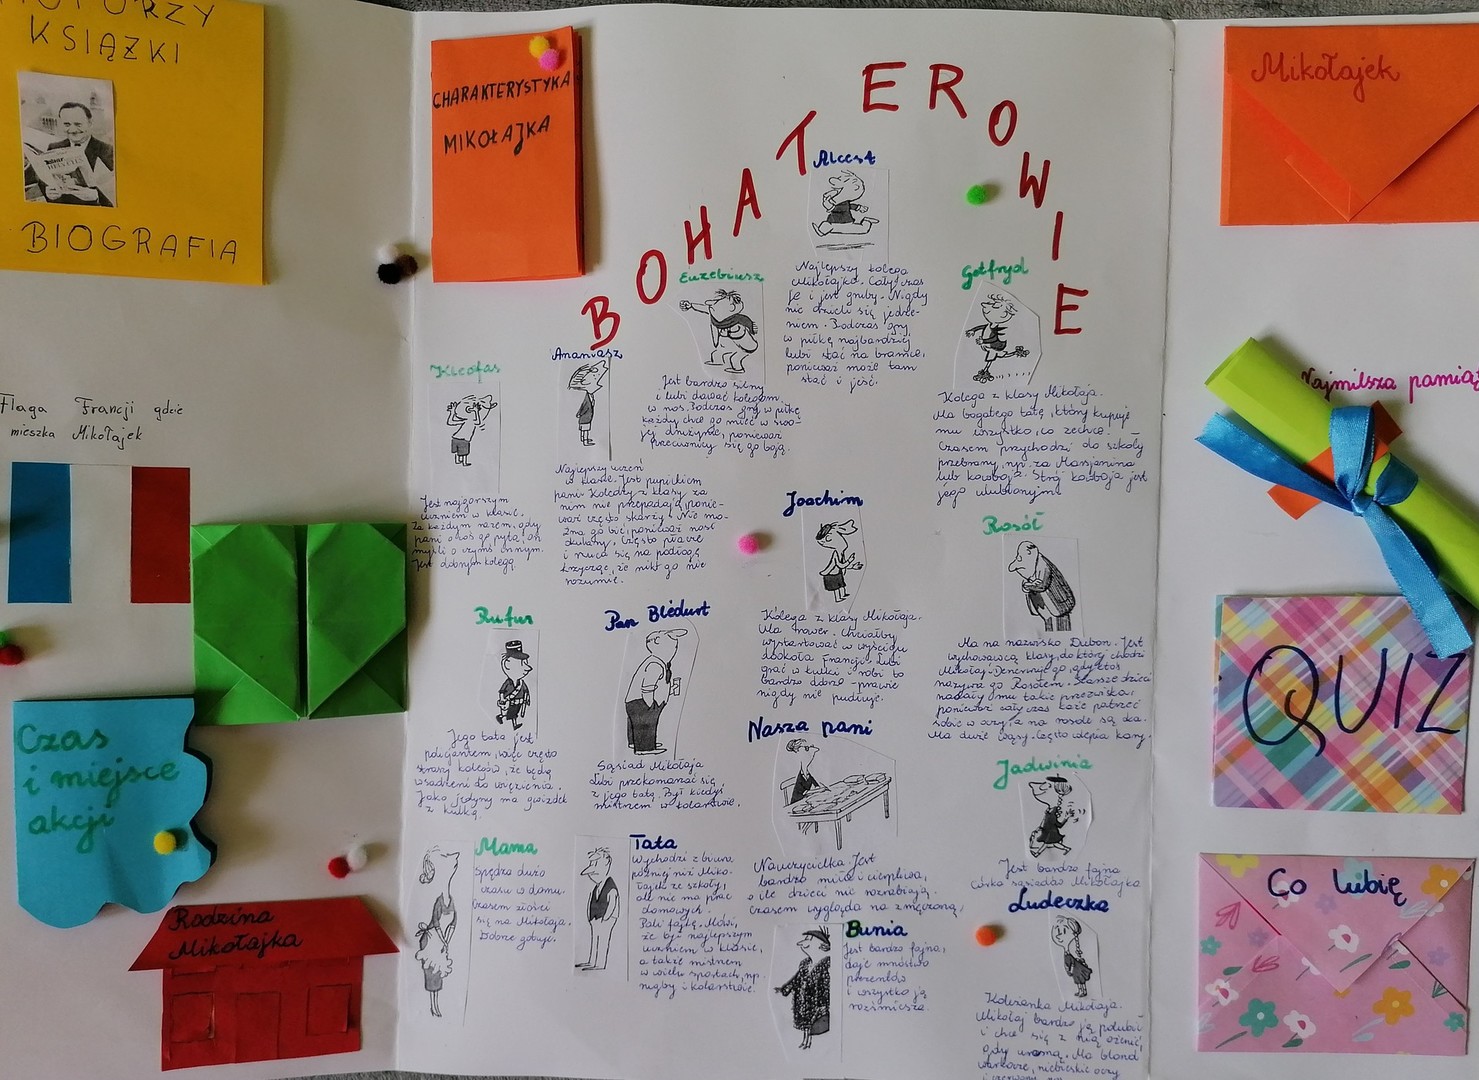 AUTORZY
KSIĄŻKI
BIOGRAFIA
Flaga Francji gdzie
mieszka Mikołajek
Czas
i miejsce
akcji
Rodzina
Mikołajka
CHARAKTERYSTYKA
MIKOŁAJKA
BOHATEROWIE
Alcest
Najlepszy kolega
Mikołajka. Cały czas
je i jest gruby. Nigdy
nie dzieli się jedze-
niem. Podczas gry
w piłkę najbardziej
lubi stać na bramce,
ponieważ może tam
stać i jeść.
Euzebiusz
Jest bardzo silny
i lubi dawać kolegom
w nos. Podczas gry w piłkę
każdy chce go mieć w swo-
jej drużynie, ponieważ
przeciwnicy się go boją.
Gotfryd
Kolega z klasy Mikołaja.
Ma bogatego tatę, który kupuje
mu wszystko, co zechce.
Czasem przychodzi do szkoły
przebrany, np. za Marsjanina
lub kowboja. Strój kowboja jest
jego ulubionym.
Kleofas
Jest najgorszym
uczniem w klasie.
Za każdym razem, gdy
pani o coś go pyta, on
myśli o czymś innym.
Jest dobrym kolegą
Ananiasz
Najlepszy uczeń
w klasie. Jest pupilkiem
pani. Koledzy z klasy za
nim nie przepadają, ponie-
waż często skarży. Nie mo-
żna go bić, ponieważ nosi
okulary. Często płacze
i rzuca się na podłogę
krzycząc, że nikt go nie
rozumie.
Joachim
Kolega z klasy Mikołaja.
Ma rower. Chciałby
wystartować w wyścigu
dookoła Francji. Lubi
grać w kulki i robi to
bardzo dobrze - prawie
nigdy nie pudłuje.
Rosół
Ma na nazwisko Dubon. Jest
wychowawcą klasy, do której chodzi
Mikołaj. Denerwuje go, gdy ktoś
nazywa go Rosołem. Starsze dzieci
nadały mu takie przezwisko,
ponieważ cały czas każe patrzeć
sobie w oczy, a na rosole są oka.
Ma duże wąsy. Często wlepia kary.
Rufus
Jego tata jest
policjantem, więc często
straszy kolegów, że będą
wsadzeni do więzienia.
Jako jedyny ma gwizdek
z kulką.
Pan Blédurt
Sąsiad Mikołaja
Lubi przekomarzać się
z jego tatą. Był kiedyś
mistrzem w kolarstwie.
Nasza pani
Nauczycielka. Jest
bardzo miła i cierpliwa,
o ile dzieci nie rozrabiają.
Czasem wygląda na zmęczoną.
Jadwinia
Jest bardzo fajna
córka sąsiadów Mikołajka
Mama
Spędza dużo
czasu w domu.
Czasem złości
się na Mikołaja.
Dobrze gotuje.
Tata
Wychodzi z biura
później niż Miko-
łajek ze szkoły,
ale nie ma prac
domowych.
Pali fajkę. Mówi,
że był najlepszym
uczniem w klasie,
a także mistrzem
w wielu sportach, np.
rugby i kolarstwie.
Bunia
Jest bardzo fajna,
daje mnóstwo
prezentów
i wszystko ją
rozśmiesza.
Ludeczka
Koleżanka Mikołaja.
Mikołaj bardzo ją polubił
i chce się z nią ożenić,
gdy urosną. Ma blond
warkocze, niebieskie oczy
Mikołajek
Najmilsza
QUIZ
Co lubię